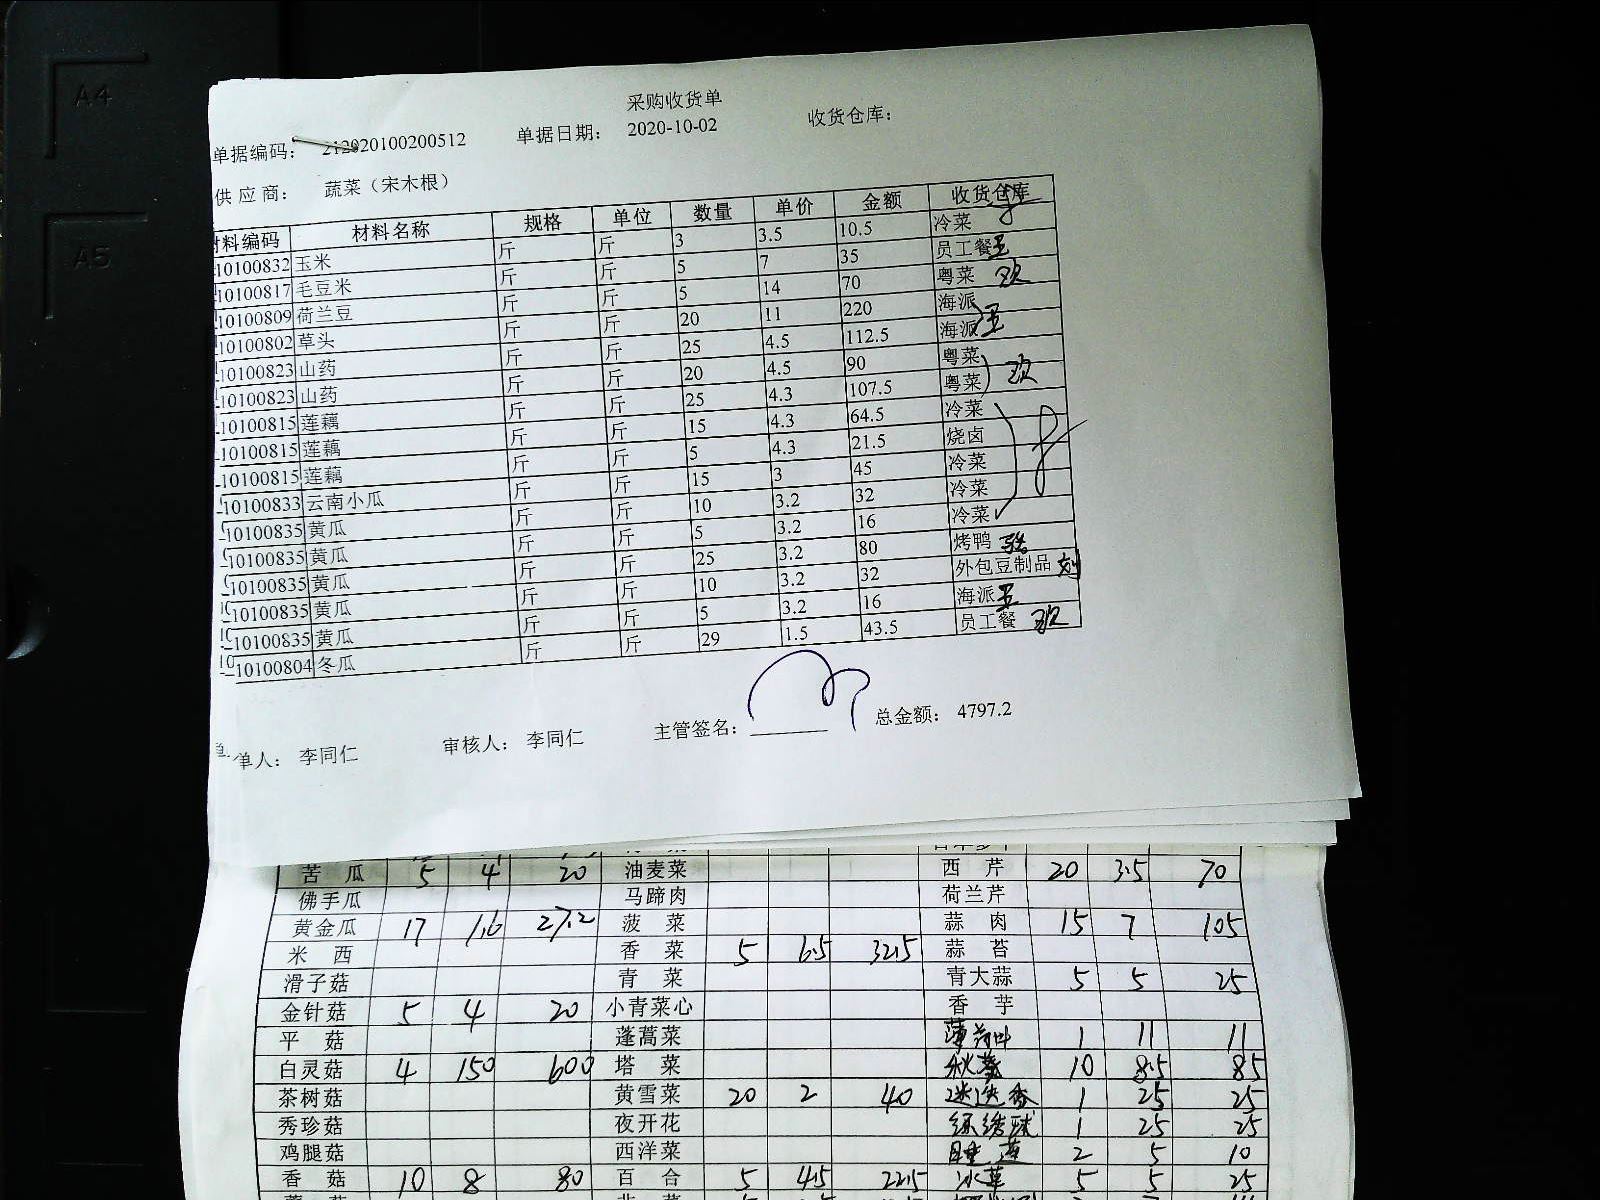 A4
A5
采购收货单
单据编码: 212020100200512 单据日期: 2020-10-02 收货仓库:
供应商: 蔬菜（宋木根）
材料编码 材料名称 规格 单位 数量 单价 金额 收货仓库
10100832 玉米 斤 斤 3 3.5 10.5 冷菜
10100817 毛豆米 斤 斤 5 7 35 员工餐 王
10100809 荷兰豆 斤 斤 5 14 70 粤菜
10100802 草头 斤 斤 20 11 220 海派
10100823 山药 斤 斤 25 4.5 112.5 海派 王
10100823 山药 斤 斤 20 4.5 90 粤菜
10100815 莲藕 斤 斤 25 4.3 107.5 粤菜
10100815 莲藕 斤 斤 15 4.3 64.5 冷菜
10100815 莲藕 斤 斤 5 4.3 21.5 烧卤
10100833 云南小瓜 斤 斤 15 3 45 冷菜
10100835 黄瓜 斤 斤 10 3.2 32 冷菜
10100835 黄瓜 斤 斤 5 3.2 16 冷菜
10100835 黄瓜 斤 斤 25 3.2 80 烤鸭
10100835 黄瓜 斤 斤 10 3.2 32 外包豆制品 刘
10100835 黄瓜 斤 斤 5 3.2 16 海派 王
10100804 冬瓜 斤 斤 29 1.5 43.5 员工餐
单人: 李同仁 审核人: 李同仁 主管签名: 总金额: 4797.2
苦瓜 5 4 20 油麦菜 西芹 20 3.5 70
佛手瓜 马蹄肉 荷兰芹
黄金瓜 17 1.6 27.2 菠菜 蒜肉 15 7 105
米西 香菜 5 6.5 32.5 蒜苔
滑子菇 青菜 青大蒜 5 5 25
金针菇 5 4 20 小青菜心 香芋
平菇 蓬蒿菜 薄荷叶 1 11 11
白灵菇 4 150 600 塔菜 秋葵 10 8.5 85
茶树菇 黄雪菜 20 2 40 迷迭香 1 25 25
秀珍菇 夜开花 绣球 1 25 25
鸡腿菇 西洋菜 睡莲 2 5 10
香菇 10 8 80 百合 5 4.5 22.5 冰草 5 5 25